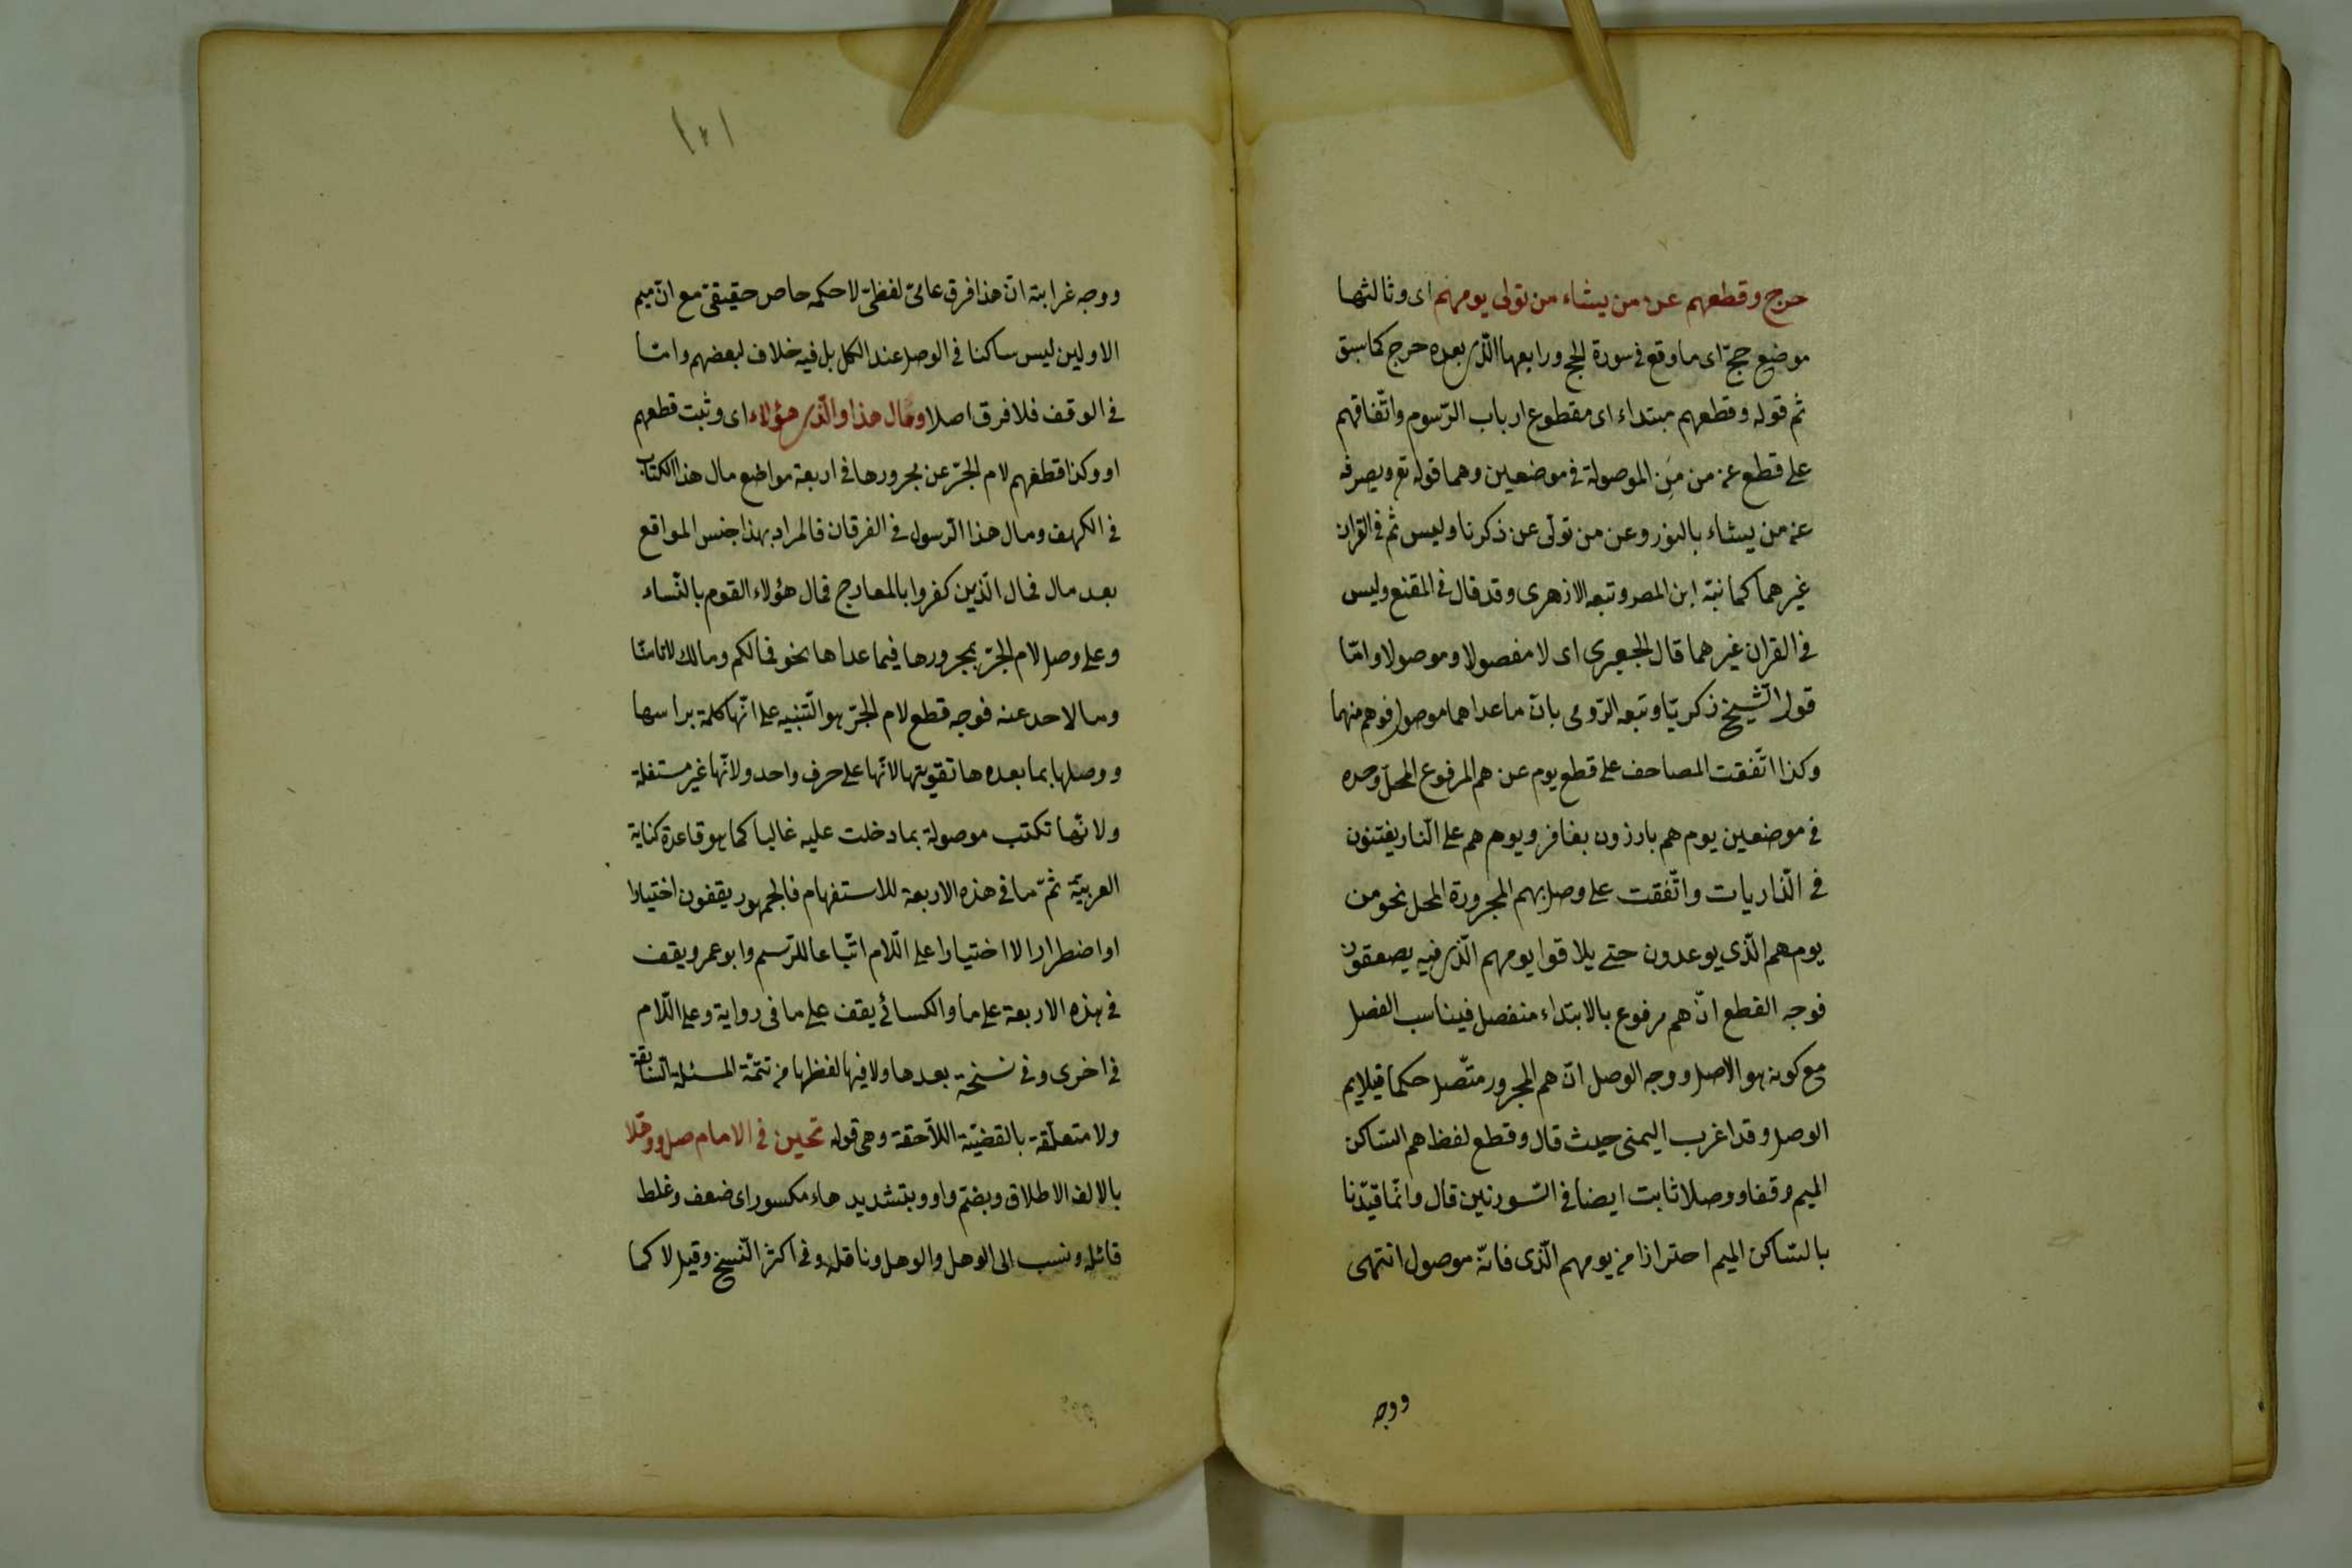 حرج وقطعهم عن من يشاء من تولى يومهم اى وثالثها
موضع حجّ اى ماوقع فى سورة الحج ورابعها الّذى بعده حرج كما سبق
ثم قوله وقطعهم مبتداء اى مقطوع ارباب الرّسوم واتّفاقهم
على قطع عن من مَن الموصولة فى موضعين وهما قوله تع ويصرفه
عن من يشاء بالنور وعن من تولّى عن ذكرنا وليس ثم فى القران
غيرهما كما نبّه ابن المص وتبعه الازهرى وقد قال فى المقنع وليس
فى القران غيرهما قال الجعبرى اى لا مفصولا وموصولا وامّا
قول الشّيخ زكريّا وتبعه الرّومى بانّ ماعداهما موصول فوهم منهما
وكذا اتّفقت المصاحف على قطع يوم عن هم المرفوع المحلّ وحده
فى موضعين يوم هم بارزون بغافر ويوم هم على النّار يفتنون
فى الذّاريات واتّفقت على وصل بهم المجرورة المحل نحو من
يومهم الّذى يوعدون حتى يلاقوا يومهم الّذى فيه يصعقون
فوجه القطع انّ هم مرفوع بالابتداء منفصل فيناسب الفصل
مع كونه هو الاصل ووجه الوصل انّ هم المجرور متّصل حكما فيلايم
الوصل وقد اغرب اليمنى حيث قال وقطع لفظ هم السّاكن
الميم وقفا ووصلا ثابت ايضا فى السّورتين قال وانّما قيّدنا
بالسّاكن الميم احترازا من يومهم الّذى فانّه موصول انتهى
ووجه
١٥١
ووجه غرابته انّ هذا فرق عامّىّ لفظىّ لا حكمه خاص حقيقىّ مع انّ ميم
الاولين ليس ساكنا فى الوصل عند الكل بل فيه خلاف لبعضهم وامّا
فى الوقف فلا فرق اصلا ومال هذا والّذى هؤلاء اى وثبت قطعهم
او وكذا قطعهم لام الجرّ عن مجرورها فى اربعة مواضع مال هذا الكتاب
فى الكهف ومال هذا الرّسول فى الفرقان فالمراد بهذا جنس المواقع
بعد مال فمال الّذين كفروا بالمعارج فمال هؤلاء القوم بالنّساء
وعلى وصل لام الجرّ بمجرورها فيما عداها نحو فمالكم ومالك لا تامنّا
ومالاحد عنه فوجه قطع لام الجرّ هو التّنبيه على انّها كلمة براسها
ووصلها بما بعده هاتقويتها لانّها على حرف واحد ولانّها غير مستقلة
ولانّها تكتب موصولة بمادخلت عليه غالبا كما هو قاعدة كتابة
العربيّة ثمّ ما فى هذه الاربعة للاستفهام فالجمهور يقفون اختيارا
او اضطرارا لا اختيارا على اللّام اتّباعا للرّسم وابو عمرو يقف
فى هذه الاربعة على ما والكسائى يقف على ما فى رواية وعلى اللّام
فى اخرى وفى نسخة بعدها ولافيها لفظها من تتمّة المسئلة السّابقة
ولا متعلّقة بالقضيّة اللاحقة وهى قوله تحين فى الامام صل ووهّلا
بالالف الاطلاق وبضمّ واو وبتشديد هاء مكسور اى ضعف وغلط
قائله ونسب الى الوهل والوهل وناقله وفى اكثر النّسخ وقيل لا كما